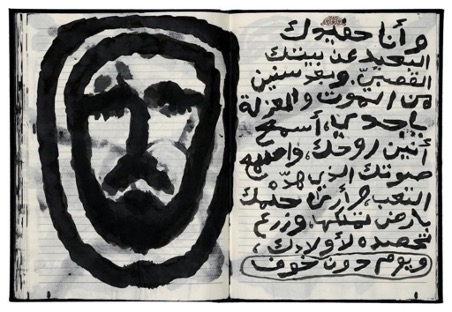 وأنا حفيدك
البعيد عن بيتك
القصيّ، وبعد سنين
من الموت والعزلة
يا جدي، أسمع
أنين روحك، و
صوتك الذي هدّه
التعب، وأرى حلمك
بأرض تملكها، وزرع
تحصده لأولادك،
ويوم دون خوف